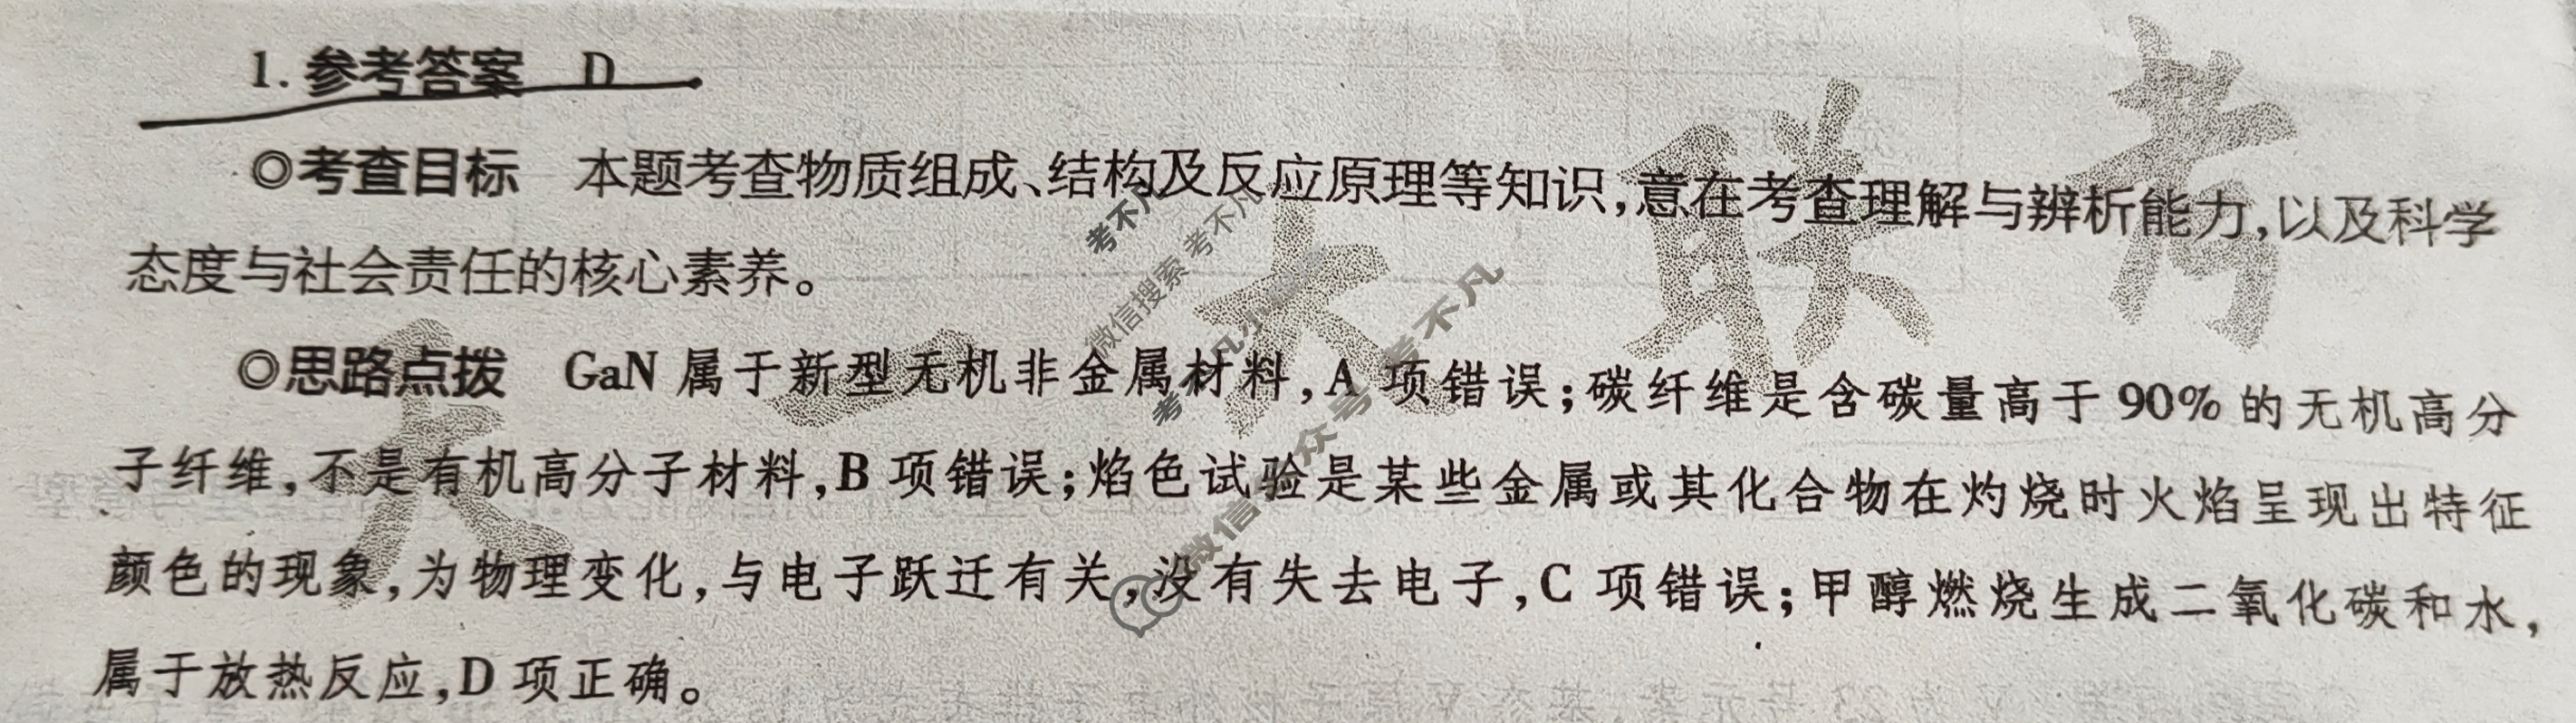 1. 参考答案 D
◎考查目标 本题考查物质组成、结构及反应原理等知识,意在考查理解与辨析能力,以及科学
态度与社会责任的核心素养。
◎思路点拨 GaN 属于新型无机非金属材料,A 项错误;碳纤维是含碳量高于 90% 的无机高分
子纤维,不是有机高分子材料,B 项错误;焰色试验是某些金属或其化合物在灼烧时火焰呈现出特征
颜色的现象,为物理变化,与电子跃迁有关,没有失去电子,C 项错误;甲醇燃烧生成二氧化碳和水,
属于放热反应,D 项正确。
天一大联考
考不凡
微信搜索 考不凡
微信公众号 考不凡